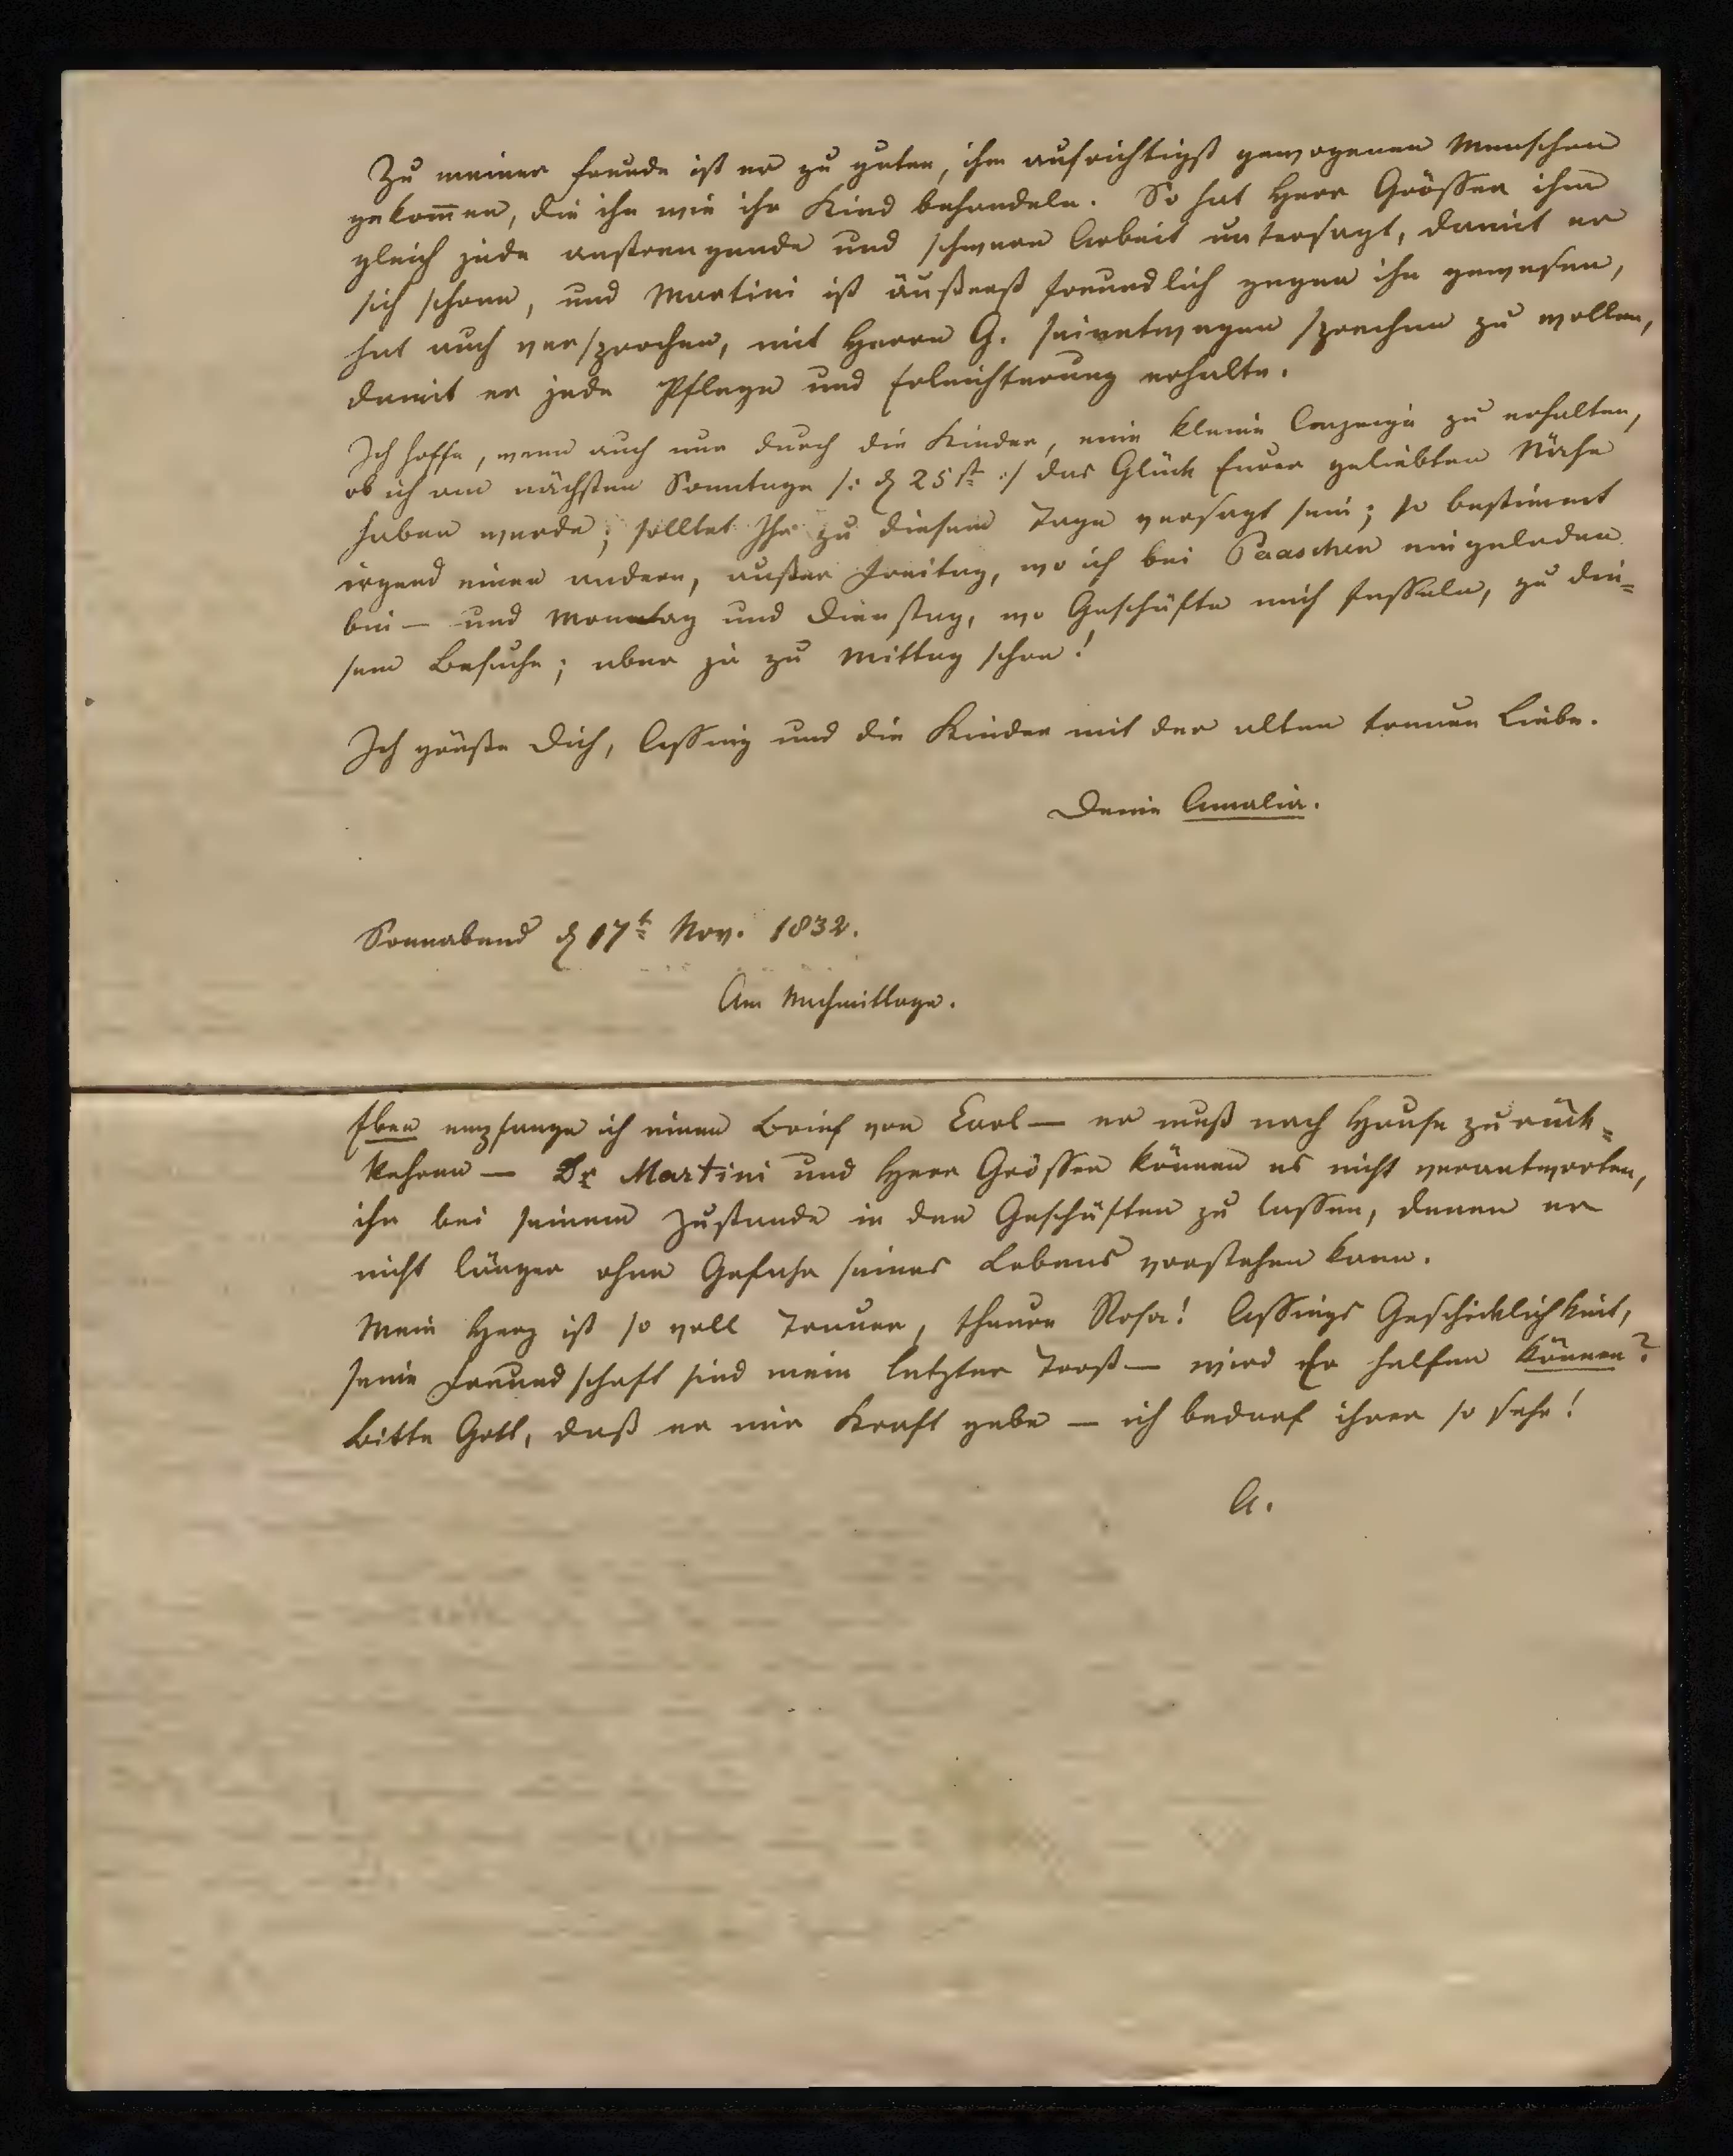 Zu meiner Freude ist er zu guten, ihm aufrichtigst gewogenen Menschen
gekom̅en, die ihn wie ihr Kind behandeln. So hat Herr Grösser ihm
gleich jede anstrengende und schwere Arbeit untersagt, damit er
sich schone, und Martini ist äußerst freundlich gegen ihn gewesen,
hat auch versprochen, mit Herrn G. seinetwegen sprechen zu wollen,
damit er jede Pflege und Erleichterung erhalte.
Ich hoffe, wenn auch nur durch die Kinder, eine kleine Anzeige zu erhalten,
ob ich am nächsten Sonntage /: d 25st :/ das Glück Eurer geliebten Nähe
haben werde; solltet Ihr zu diesem Tage versagt sein; so bestimmt
irgend einen andern, außer Freitag, wo ich bei Paaschen eingeladen
bin — und Montag und Dienstag, wo Geschäfte mich fesseln, zu die=
sem Besuche; aber ja zu Mittag schon!
Ich grüße Dich, Assing und die Kinder mit der alten treuen Liebe.
Deine Amalia.
Sonnabend d 17t Nov. 1832.
Am Nachmittage.
Eben empfange ich einen Brief von Carl — er muß nach Hause zurück=
kehren — Dr Martini und Herr Grösser können es nicht verantworten,
ihn bei seinem Zustande in den Geschäften zu lassen, denen er
nicht länger ohne Gefahr seines Lebens vorstehen kann.
Mein Herz ist so voll Trauer, theure Rosa! Assings Geschicklichkeit,
seine Freundschaft sind mein letzter Trost — wird Er helfen können?
Bitte Gott, daß er mir Kraft gebe — ich bedarf ihrer so sehr!
A.